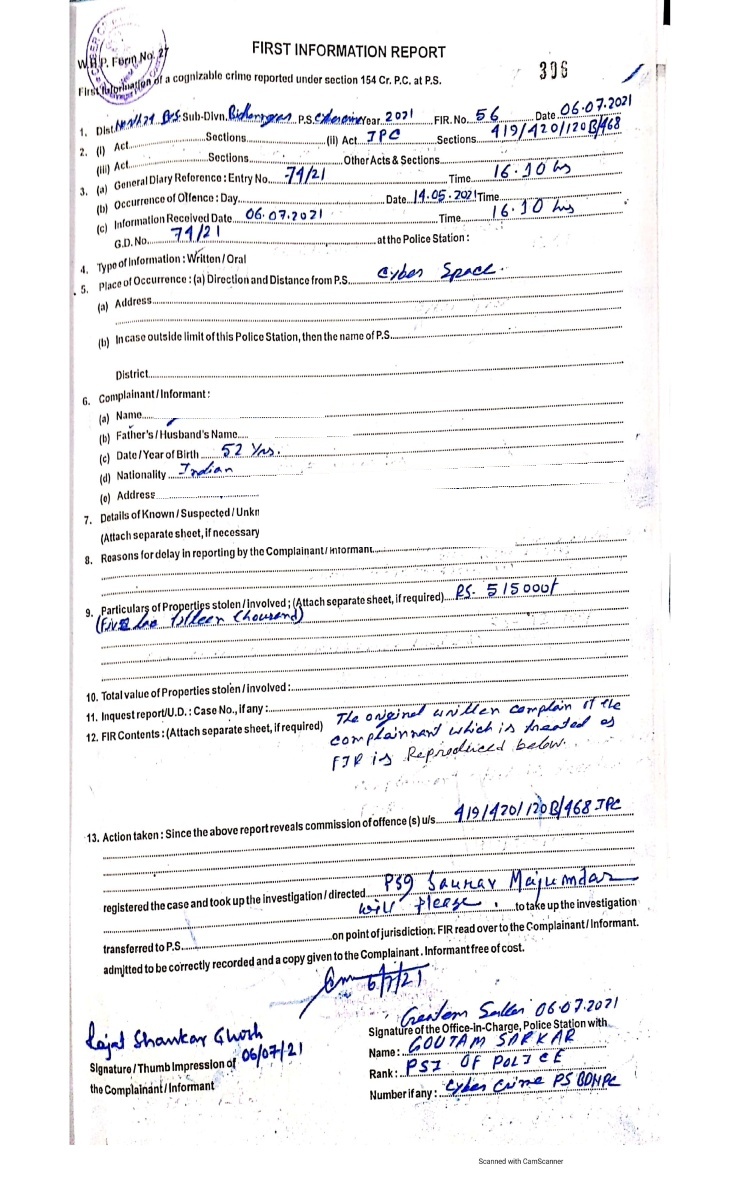 FIRST INFORMATION REPORT
W.B.P. Form No. 27
306
First Information of a cognizable crime reported under section 154 Cr. P.C. at P.S.
1. Dist. North 24 Sub-Divn. Bidhannagar P.S. Year 2021 FIR. No. 56 Date 06.07.2021
2. (i) Act Sections (ii) Act IPC Sections 419/420/120B/468
(iii) Act Sections Other Acts & Sections
3. (a) General Diary Reference : Entry No. 74/21 Time 16.10 hrs
(b) Occurrence of Offence : Day Date 14.05.2021 Time
(c) Information Received Date 06.07.2021 Time 16.10 hrs
G.D. No. 74/21 at the Police Station :
4. Type of Information : Written / Oral
5. Place of Occurrence : (a) Direction and Distance from P.S. Cyber Space.
(a) Address
(b) In case outside limit of this Police Station, then the name of P.S.
District
6. Complainant / Informant :
(a) Name
(b) Father's / Husband's Name
(c) Date / Year of Birth 52 Yrs.
(d) Nationality Indian
(e) Address
7. Details of Known / Suspected / Unkn
(Attach separate sheet, if necessary
8. Reasons for delay in reporting by the Complainant / Informant
9. Particulars of Properties stolen / Involved ; (Attach separate sheet, if required) RS. 515000/
(Five lac fifteen thousand)
10. Total value of Properties stolen / involved :
11. Inquest report / U.D. : Case No., if any :
12. FIR Contents : (Attach separate sheet, if required) The original written complain of the
complainnant which is treated as
FIR is Reproduced below.
13. Action taken : Since the above report reveals commission of offence (s) u/s 419/420/120B/468 IPC
registered the case and took up the investigation / directed PSI Saurav Majumdar
will Please. to take up the investigation
transferred to P.S. on point of jurisdiction. FIR read over to the Complainant / Informant.
admitted to be correctly recorded and a copy given to the Complainant. Informant free of cost.
6/7/21
Goutam Sarkar 06.07.2021
Rajat Shankar Ghosh
06/07/21
Signature / Thumb Impression of
the Complainant / Informant
Signature of the Office-in-Charge, Police Station with
Name : GOUTAM SARKAR
Rank : PSI OF POLICE
Number if any : Cyber Crime PS BDNPC
Scanned with CamScanner